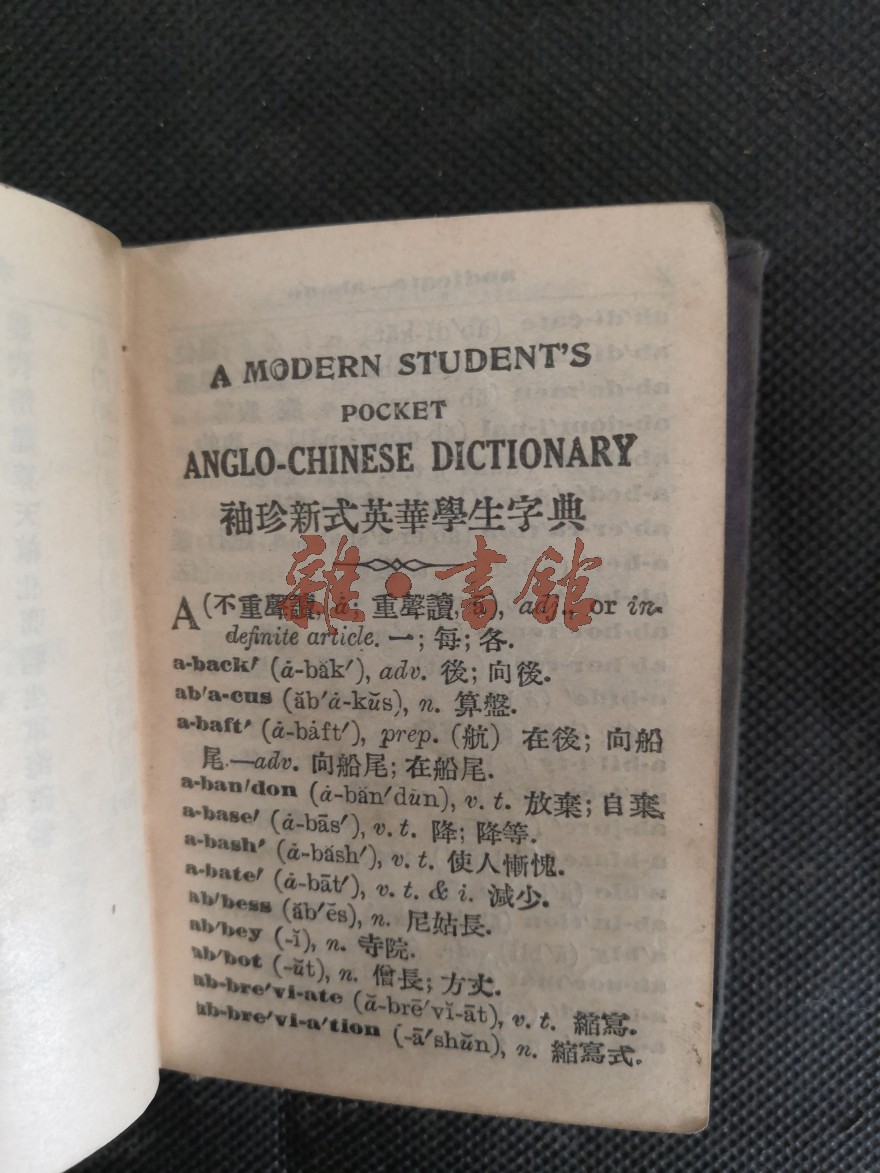 A MODERN STUDENT'S
POCKET
ANGLO-CHINESE DICTIONARY
袖珍新式英華學生字典
雜·書館
A (不重聲讀, ȧ; 重聲讀, ā), adj., or in-
definite article. 一; 每; 各.
a-back′ (ȧ-băk′), adv. 後; 向後.
ab′a-cus (ăb′ȧ-kŭs), n. 算盤.
a-baft′ (ȧ-bȧft′), prep. (航) 在後; 向船
尾.—adv. 向船尾; 在船尾.
a-ban′don (ȧ-băn′dŭn), v. t. 放棄; 自棄.
a-base′ (ȧ-bās′), v. t. 降; 降等.
a-bash′ (ȧ-băsh′), v. t. 使人慚愧.
a-bate′ (ȧ-bāt′), v. t. & i. 減少.
ab′bess (ăb′ĕs), n. 尼姑長.
ab′bey (-ĭ), n. 寺院.
ab′bot (-ŭt), n. 僧長; 方丈.
ab-bre′vi-ate (ă-brē′vĭ-āt), v. t. 縮寫.
ab-bre′vi-a′tion (-ā′shŭn), n. 縮寫式.